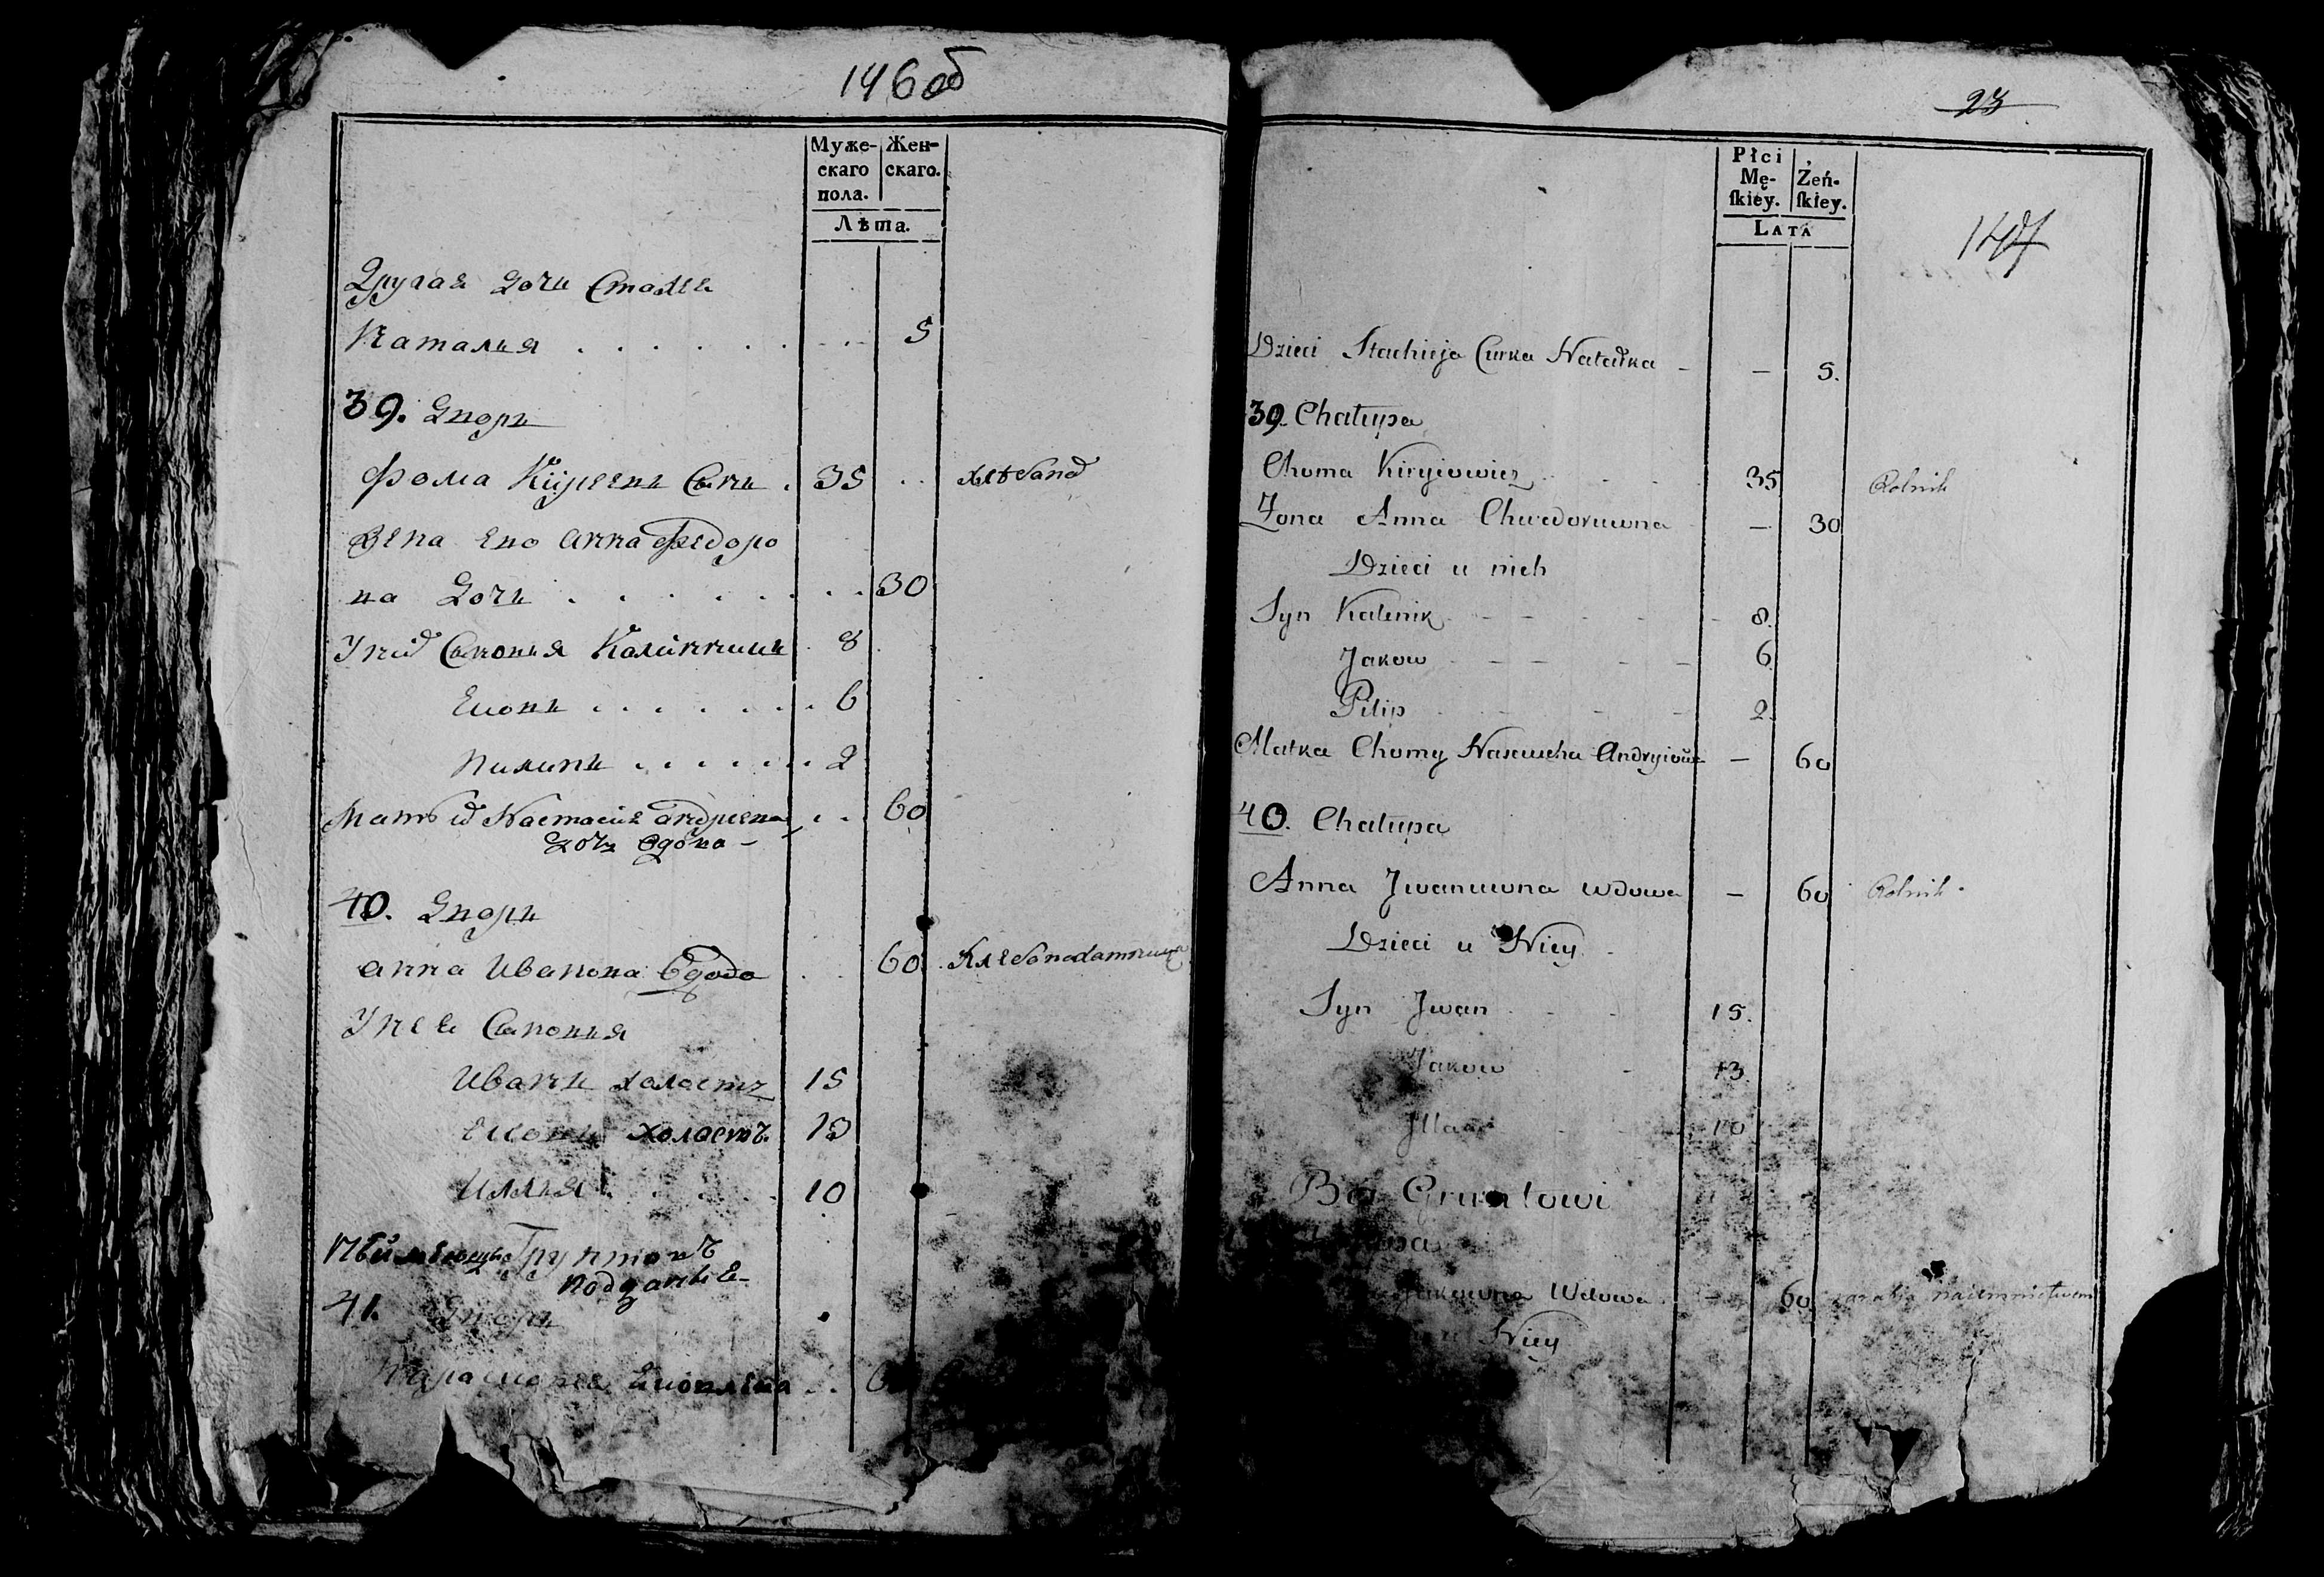 146об
Муже-
скаго
пола.
Жен-
скаго.
Лѣта.
Другая дочь Стахея
Наталья . . . . . . . . . 5
39. Дворъ
Фома Кирѣевъ Сынъ . 35 . .
Жена Его Анна Федоро
ва Дочь . . . . . . . . 30
У нид Сыновья Калинникъ . 8
Ековъ . . . . . . . 6
Пилипъ . . . . . . . 2
Мать ид Настасия Андреева . . 60
дочь вдова —
40. Дворъ
Анна Иванова вдова . . 60
У нее Сыновья
Иванъ холостъ 15
Ековъ холостъ. 13
Иллья . . . . 10
Грунтовъ
41. Дворъ
Ековлева . .
23
147
Płci
Mę-
ſkiey.
Żeń-
ſkiey.
LATA
Dzieci Stachieja Curka Natałka - — 5.
39. Chałupa
Choma Kiryiowicz 35 Rolnik
Zona Anna Chwedoruwna — 30
Dzieci u nich
Syn Kalenik - - - - 8.
Jakow - - - - 6
Pilip - - - 2.
Matka Chomy Nascucha Andryiowa — 60
40. Chałupa
Anna Jwanuwna wdowa — 60 Rolnik.
Dzieci u Niey.
Syn Jwan - - 15.
Jakow - 13.
10
Gruntowi
Wdowa — 60 zarabia naiemnictwem
u Niey